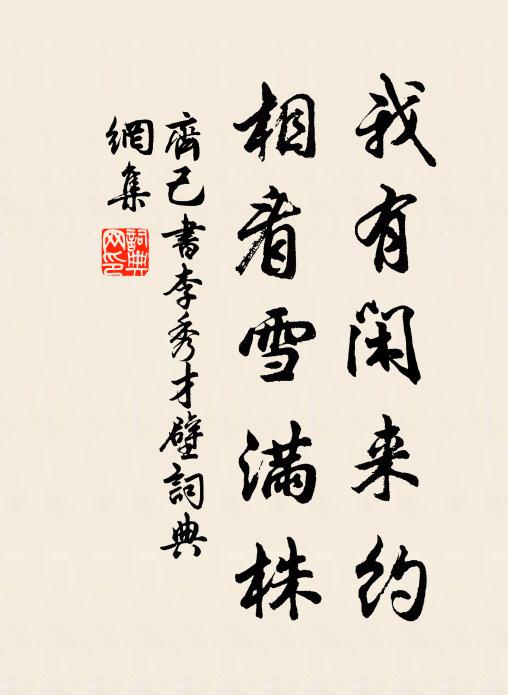 我有闲来约
相看雪满株
齊己書李秀才壁詞典
網集
詞典
网印